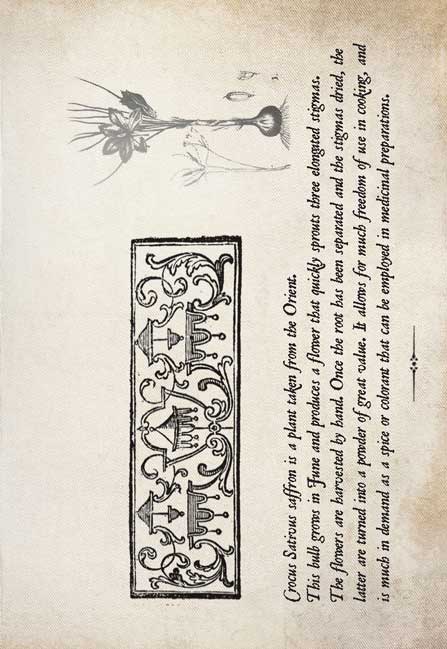 Crocus Sativus saffron is a plant taken from the Orient.
This bulb grows in June and produces a flower that quickly sprouts three elongated stigmas.
The flowers are harvested by hand. Once the root has been separated and the stigmas dried, the
latter are turned into a powder of great value. It allows for much freedom of use in cooking, and
is much in demand as a spice or colorant that can be employed in medicinal preparations.